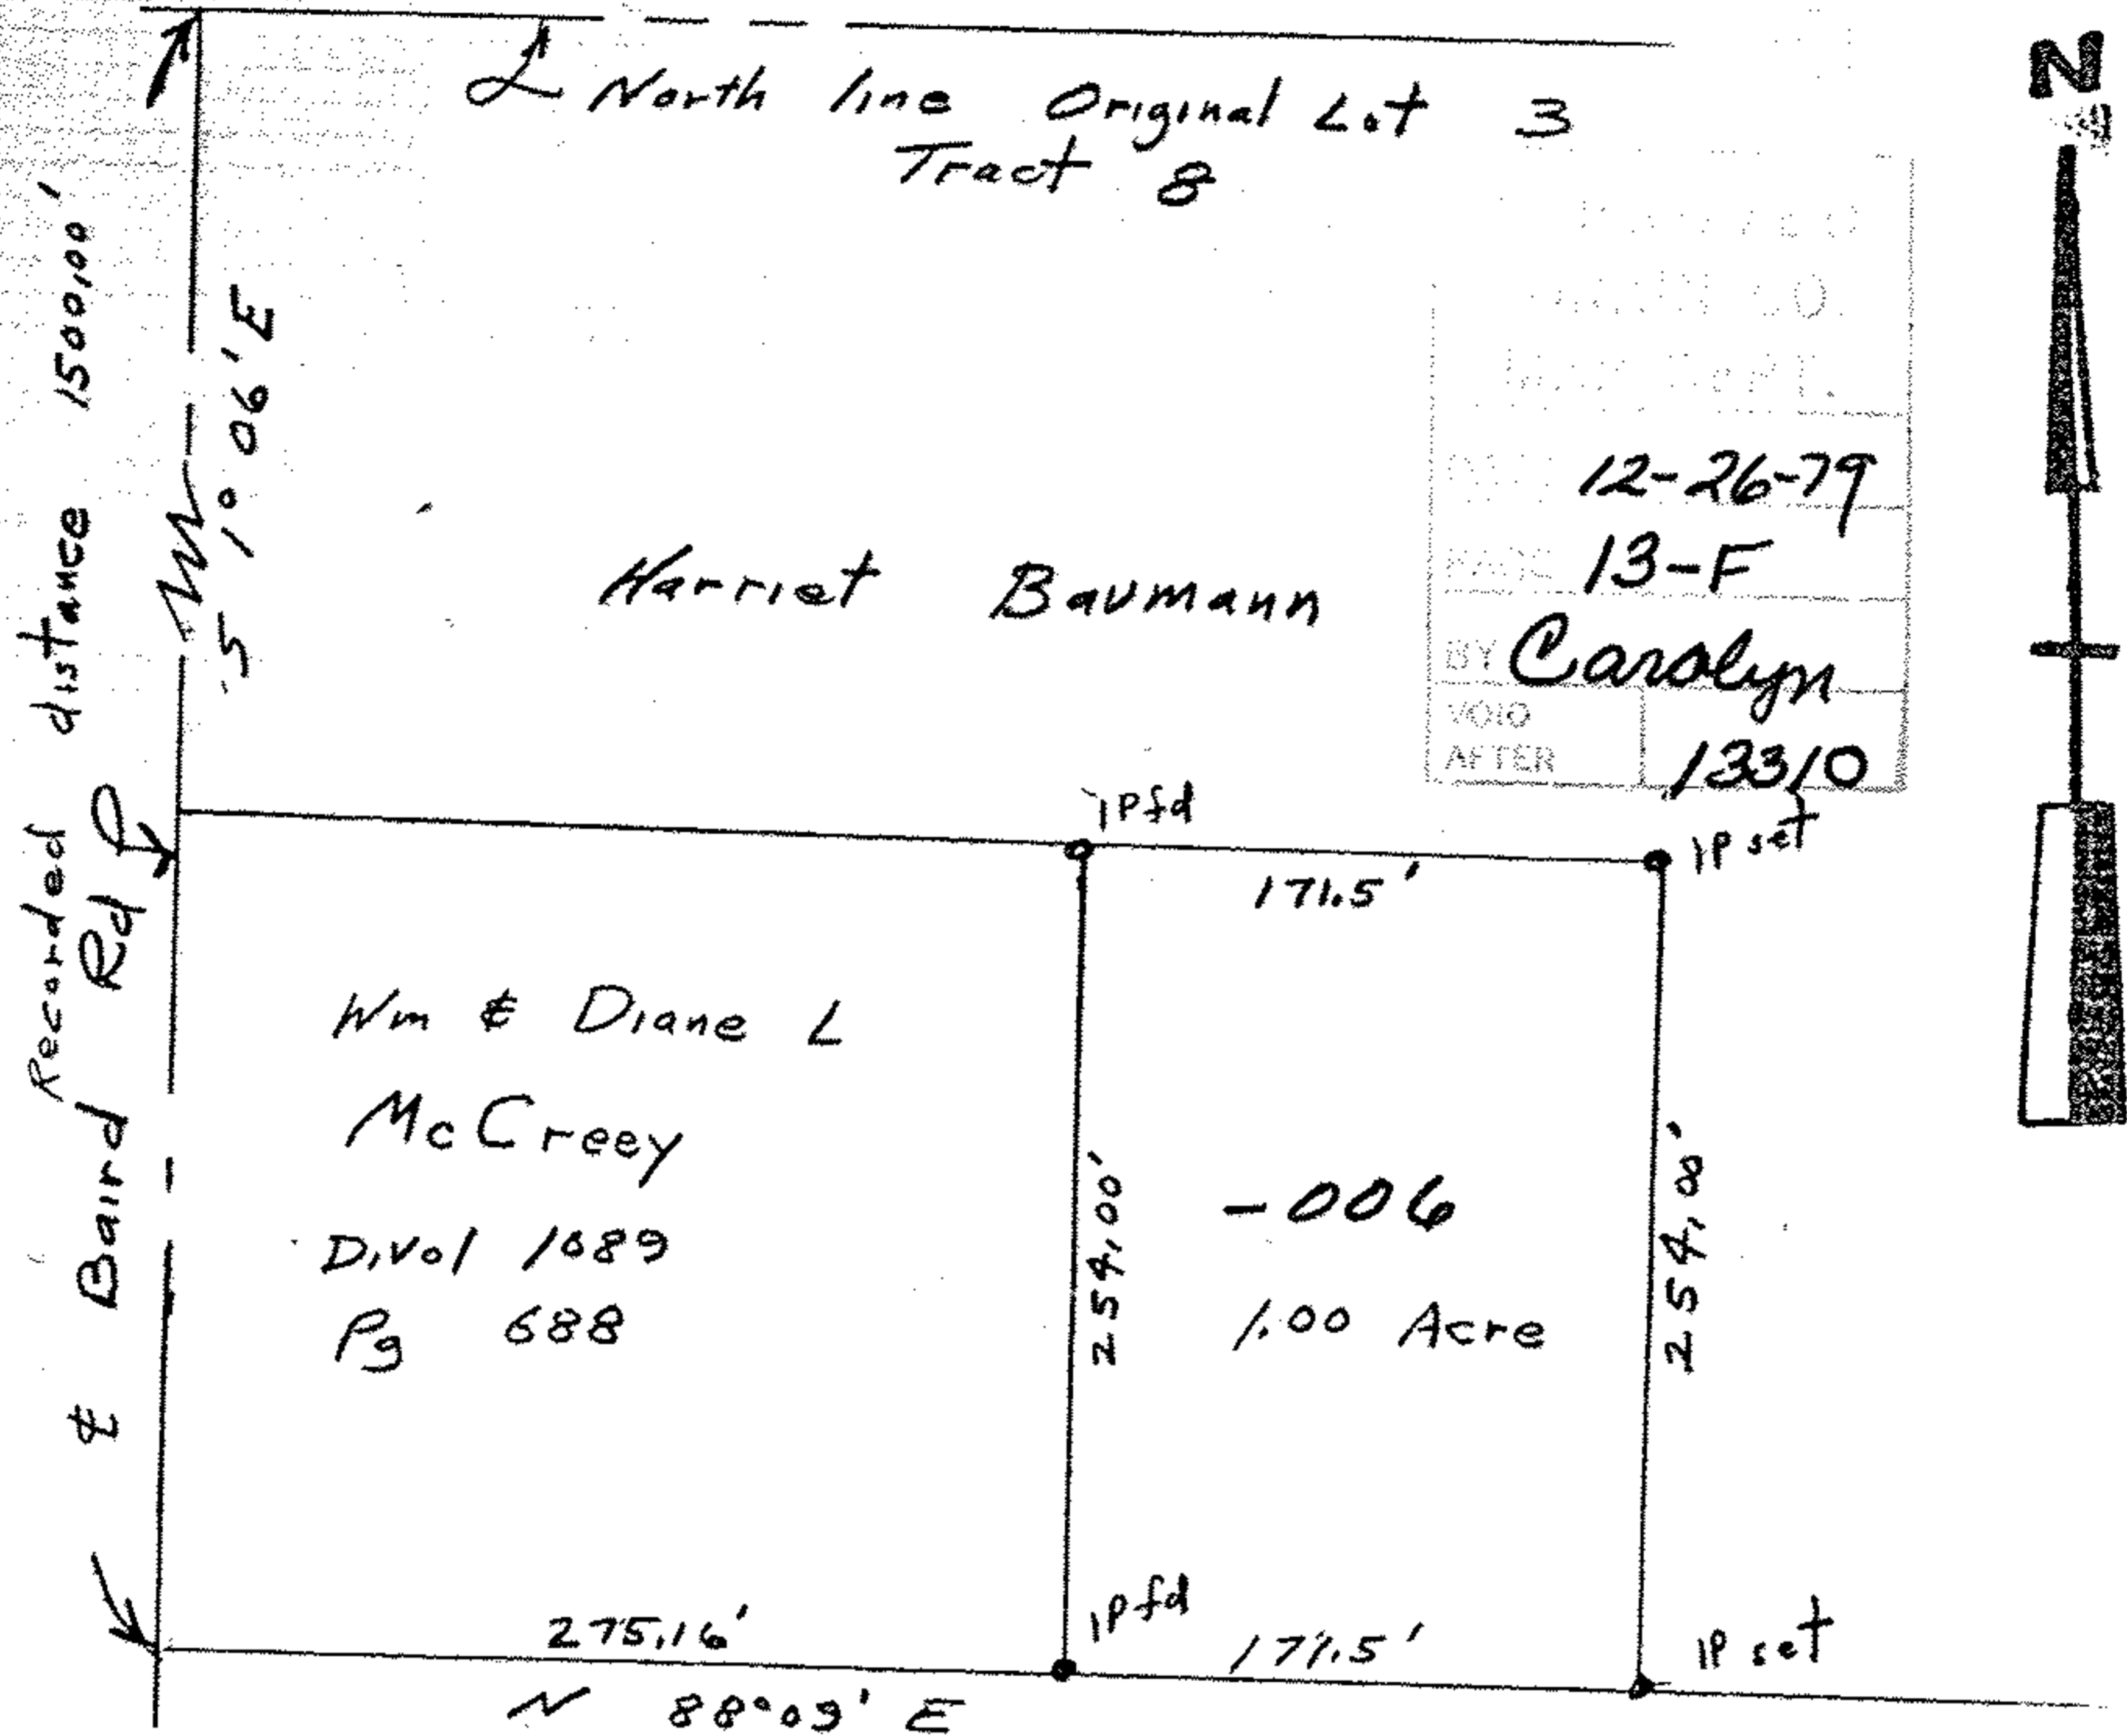 N
North line Original Lot 3
Tract 8
Recorded distance 1500.00'
S 1° 06' E
Harriet Baumann
12-26-79
PAGE 13-F
BY Carolyn
VOID
AFTER 13310
℄ Baird Rd
IPfd
IP set
171.5'
Wm & Diane L
McCreey
D.Vol 1089
Pg 688
254.00'
-006
1.00 Acre
254.00'
275.16'
IPfd
171.5'
IP set
N 88°09' E